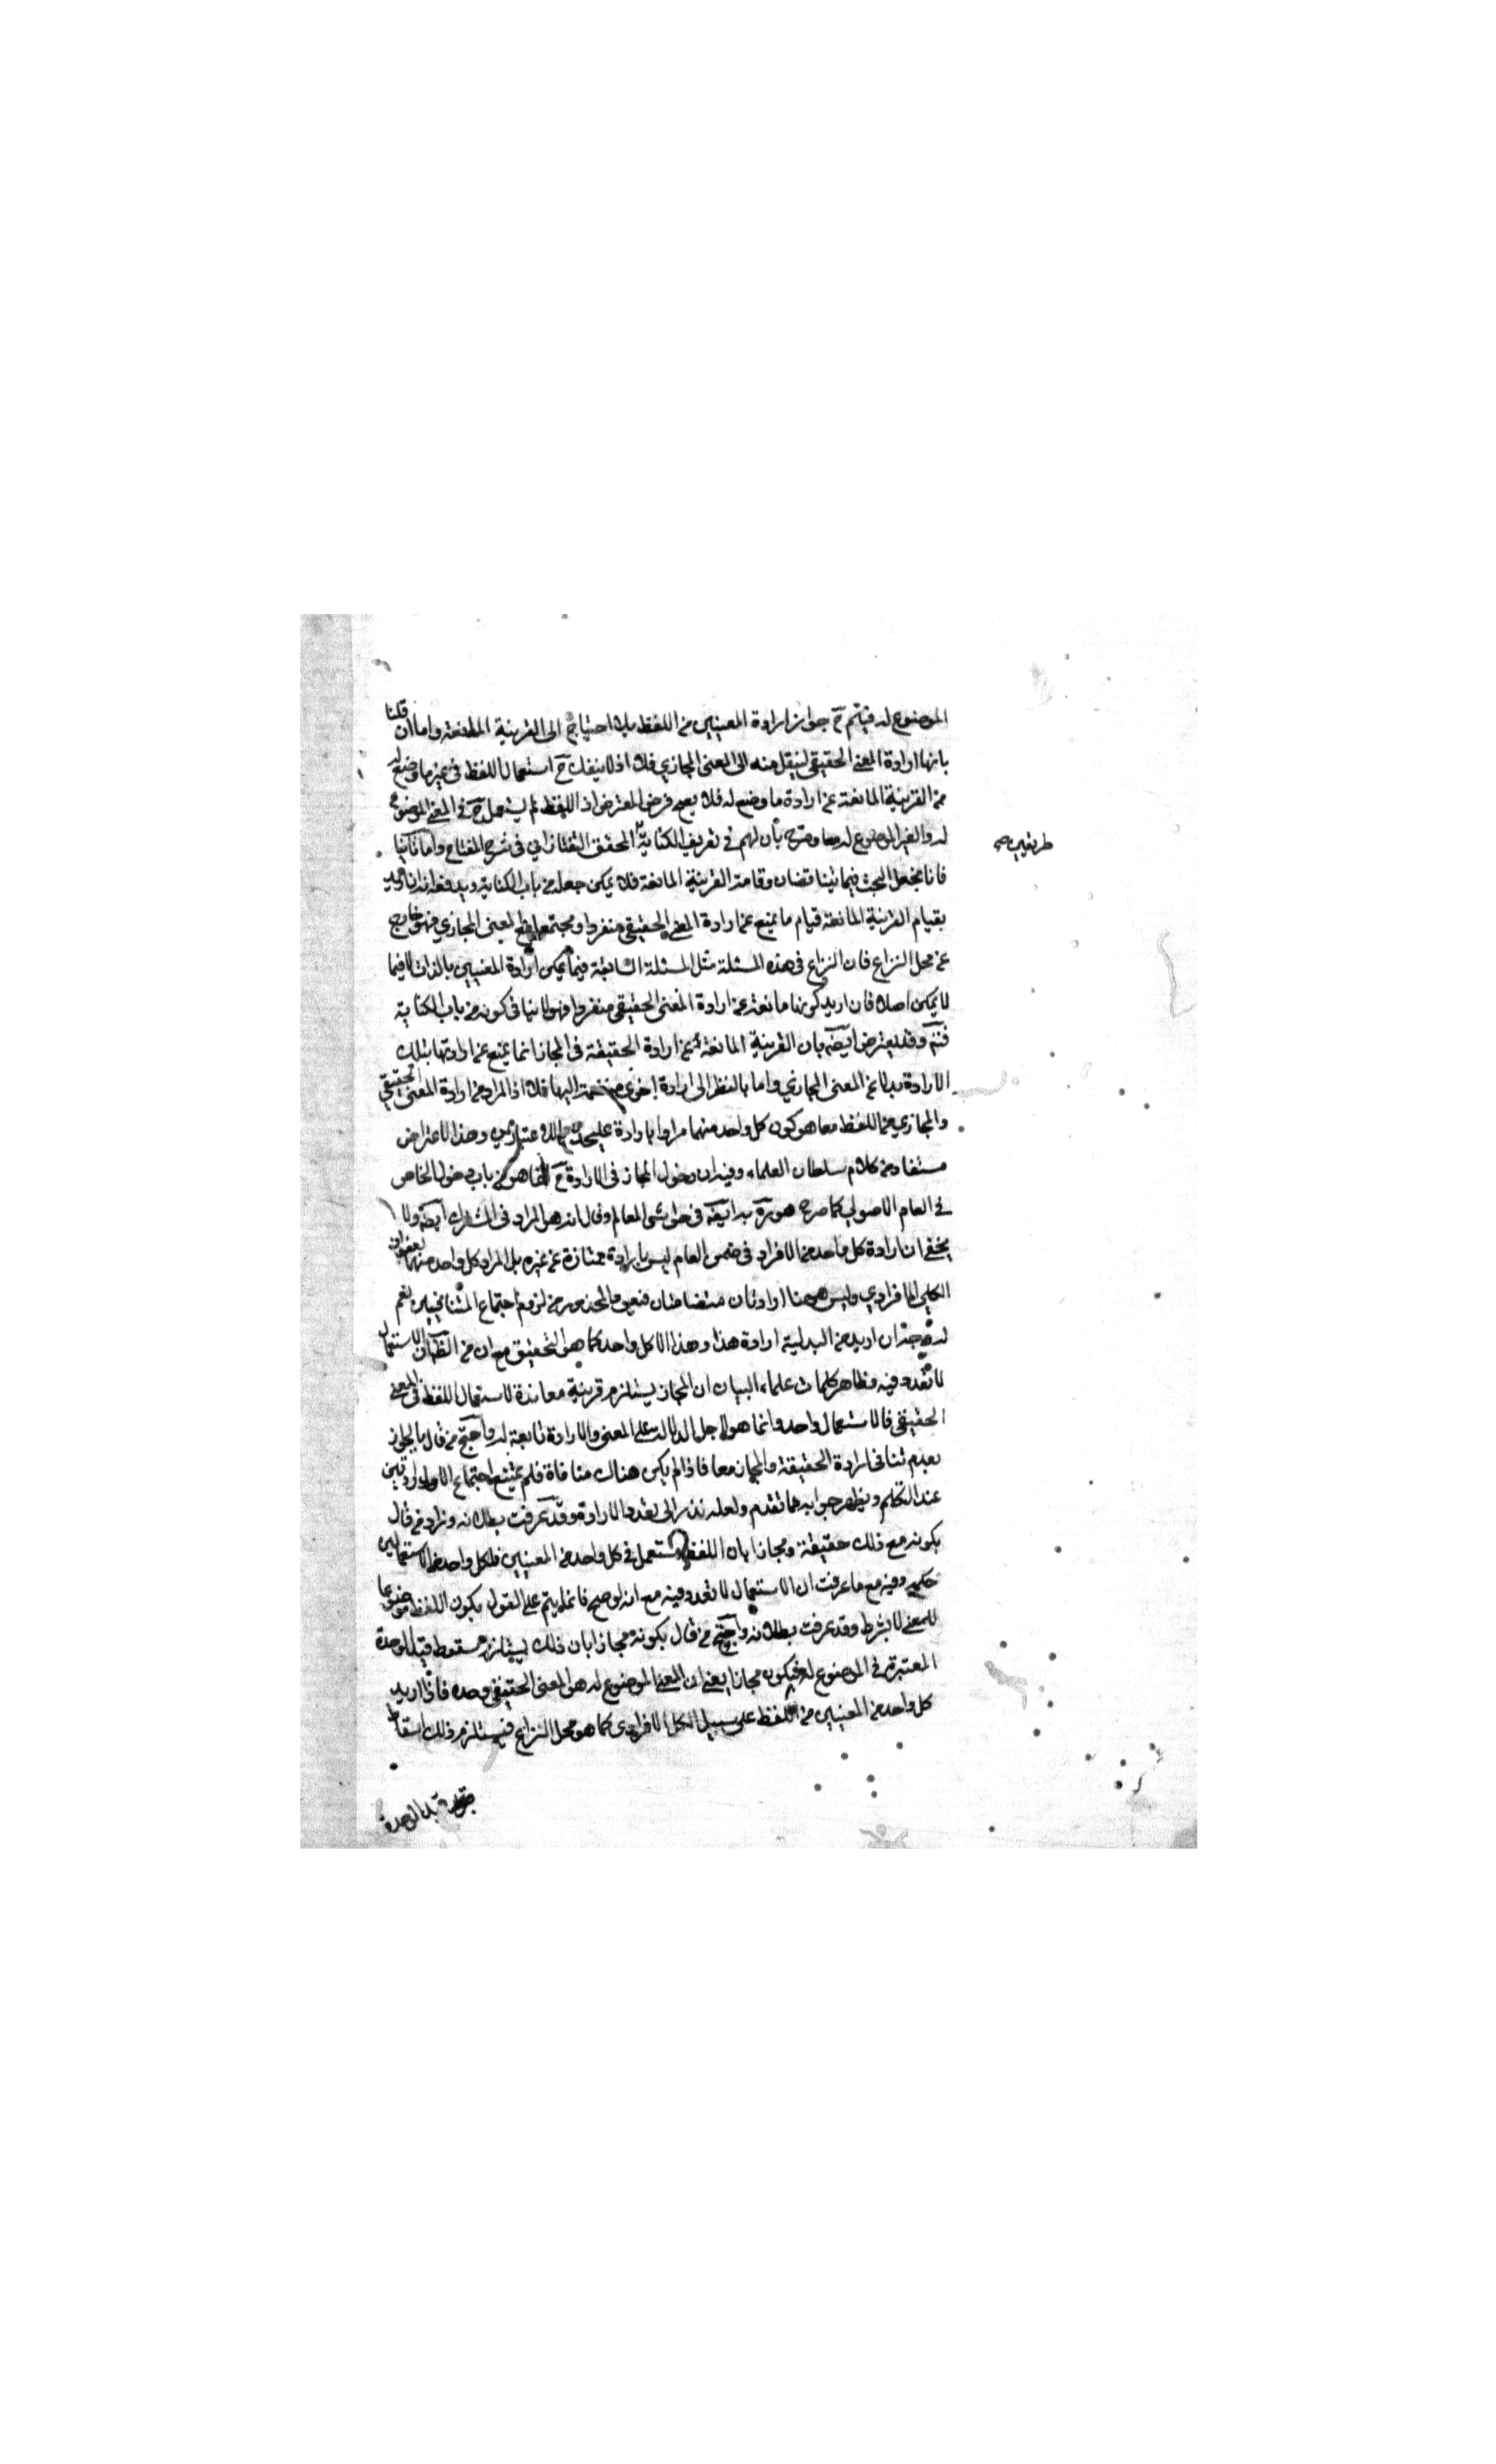 الموضوع له فيتم ح جواز ارادة المعنيين من اللفظ بلا احتياج الى القرينة المانعة واما ان قلنا
بانها ارادة المعنى الحقيقي لينتقل منه الى المعنى المجازي فلا اذ لا ينفك ح استعمال اللفظ في غير ما وضع له
من القرينة المانعة عن ارادة ما وضع له فلا يصح فرض المعترض اذ اللفظ لم يستعمل ح في المعنى الموضوع
له والغير الموضوع له معا وصرح بان لهم في تعريف الكناية المحقق التفتازاني في شرح المفتاح واما ثانيا
طريقين صح
فانا نجعل البحث فيما وقامت القرينة المانعة فلا يمكن جعله من باب الكناية وفيه انه ان اريد
بقيام القرينة المانعة قيام ما يمنع عن ارادة المعنى الحقيقي منفردا ومجتمعا مع المعنى المجازي فهو خارج
عن محل النزاع فان النزاع في هذه المسئلة مثل المسئلة السابقة فيما يمكن ارادة المعنيين بالذات لا فيما
لا يمكن اصلا فان اريد كونها مانعة عن ارادة المعنى الحقيقي منفردا فهو لا ينافي كونه من باب الكناية
فتم وقد يعترض ايضا بان القرينة المانعة عن ارادة الحقيقة في المجاز انما يمنع عن ارادتها بتلك
الارادة بدلا عن المعنى المجازي واما بالنظر الى ارادة اخرى منضمة اليها فلا اذ المراد من ارادة المعنى الحقيقي
والمجازي من اللفظ معا هو كون كل واحد منهما مرادا بارادة عليحدة وهذا الاعتراض
مستفاد من كلام سلطان العلماء وفيه ان دخول المجاز في الارادة ح انما هو من باب دخول الخاص
في العام الاصولي كما صرح هو ره به ايضا في حواشي المعالم وقال انه هو المراد في المشترك ايضا ولا
يخفى ان ارادة كل واحد من الافراد في ضمن العام ليس بارادة ممتازة عن غيره بل المراد كل واحد منهما بعنوان
الكلي الافرادي وليس ههنا ارادتان متضامتان فيعود المحذور من لزوم اجتماع المتنافيين نعم
له وجه ان اريد من البدلية ارادة هذا وهذا لا كل واحد كما هو التحقيق مع ان من الظاهر ان الاستعمال
لا تعدد فيه وظاهر كلمات علماء البيان ان المجاز يستلزم قرينة معاندة لاستعمال اللفظ في المعنى
الحقيقي فالاستعمال واحد وانما هو لاجل الدلالة على المعنى والارادة تابعة له واحتج من قال بالجواز
بعدم تنافي ارادة الحقيقة والمجاز معا فاذا لم يكن هناك منافاة فلم يمتنع اجتماع الارادتين
عند التكلم ويظهر جوابه مما تقدم ولعله نذر الى تعدد الارادة وقد عرفت بطلانه وزاد من قال
بكونه مع ذلك حقيقة ومجازا بان اللفظ مستعمل في كل واحد من المعنيين فلكل واحد من الاستعمالين
حكمه وفيه مع ما عرفت ان الاستعمال لا تعدد فيه مع انه لو صح فانما يتم على القول بكون اللفظ موضوعا
للمعنى لا بشرط وقد عرفت بطلانه واحتج من قال بكونه مجازا بان ذلك يستلزم سقوط قيد الوحدة
المعتبرة في الموضوع له فيكون مجازا يعني ان المعنى الموضوع له هو المعنى الحقيقي وحده فاذا اريد
كل واحد من المعنيين من اللفظ على سبيل الكل الافرادي كما هو محل النزاع فيستلزم ذلك اسقاط
قيد الوحدة